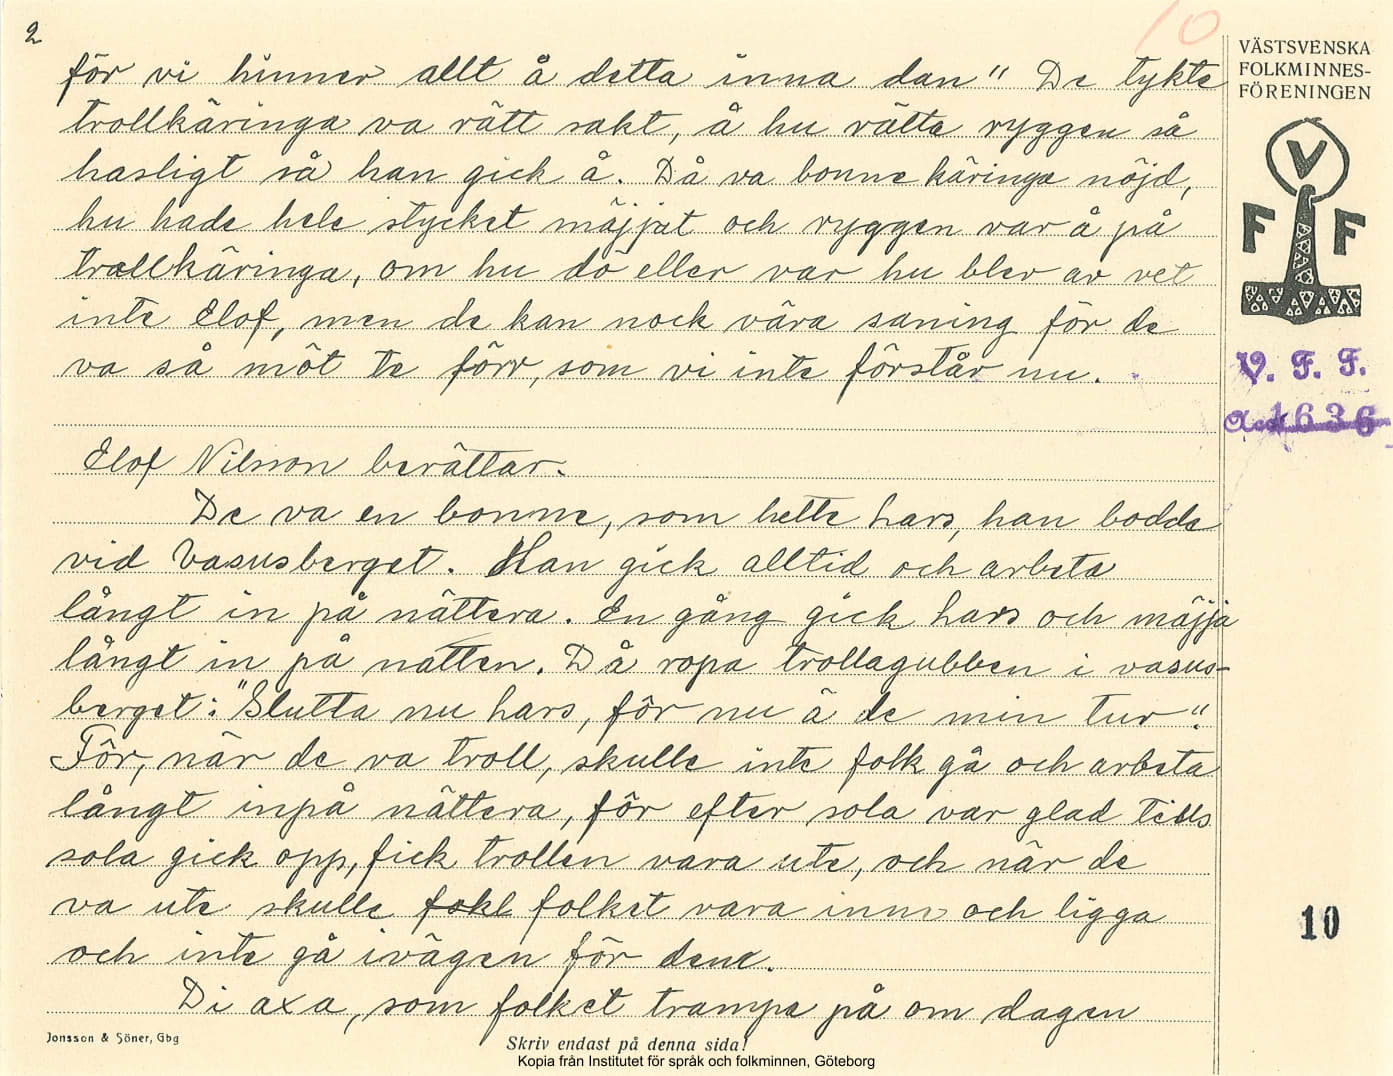 2
10
för vi hinner allt å detta inna dan" De tykte
trollkäringa va rätt sakt, å hu rätte ryggen så
hasligt så han gick å. Då va bonne käringa nöjd,
hu hade hele stycket mäjjat och ryggen var å på
trollkäringa, om hu dö eller var hu blev av vet
inte Elof, men de kan nock våra saning för de
va så möt te förr, som vi inte förstår nu.
Elof Nilsson berättar.
De va en bonne, som hette Lars, han bodde
vid Vasusberget. Han gick alltid och arbeta
långt in på nättera. En gång gick Lars och mäjja
långt in på natten. Då ropa trollagubben i vasus-
berget: "Slutta nu Lars, för nu ä de min tur".
För, när de va troll, skulle inte folk gå och arbeta
långt inpå nättera, för efter sola var glad tells
sola gick opp, fick trollen vara ute, och när de
va ute skulle fokl folket vara inne och ligga
och inte gå ivägen för dene.
Di axa, som folket trampe på om dagen
VÄSTSVENSKA
FOLKMINNES-
FÖRENINGEN
V
F F
V. F. F.
Acc 1636
10
Jonsson & Söner, Gbg
Skriv endast på denna sida!
Kopia från Institutet för språk och folkminnen, Göteborg